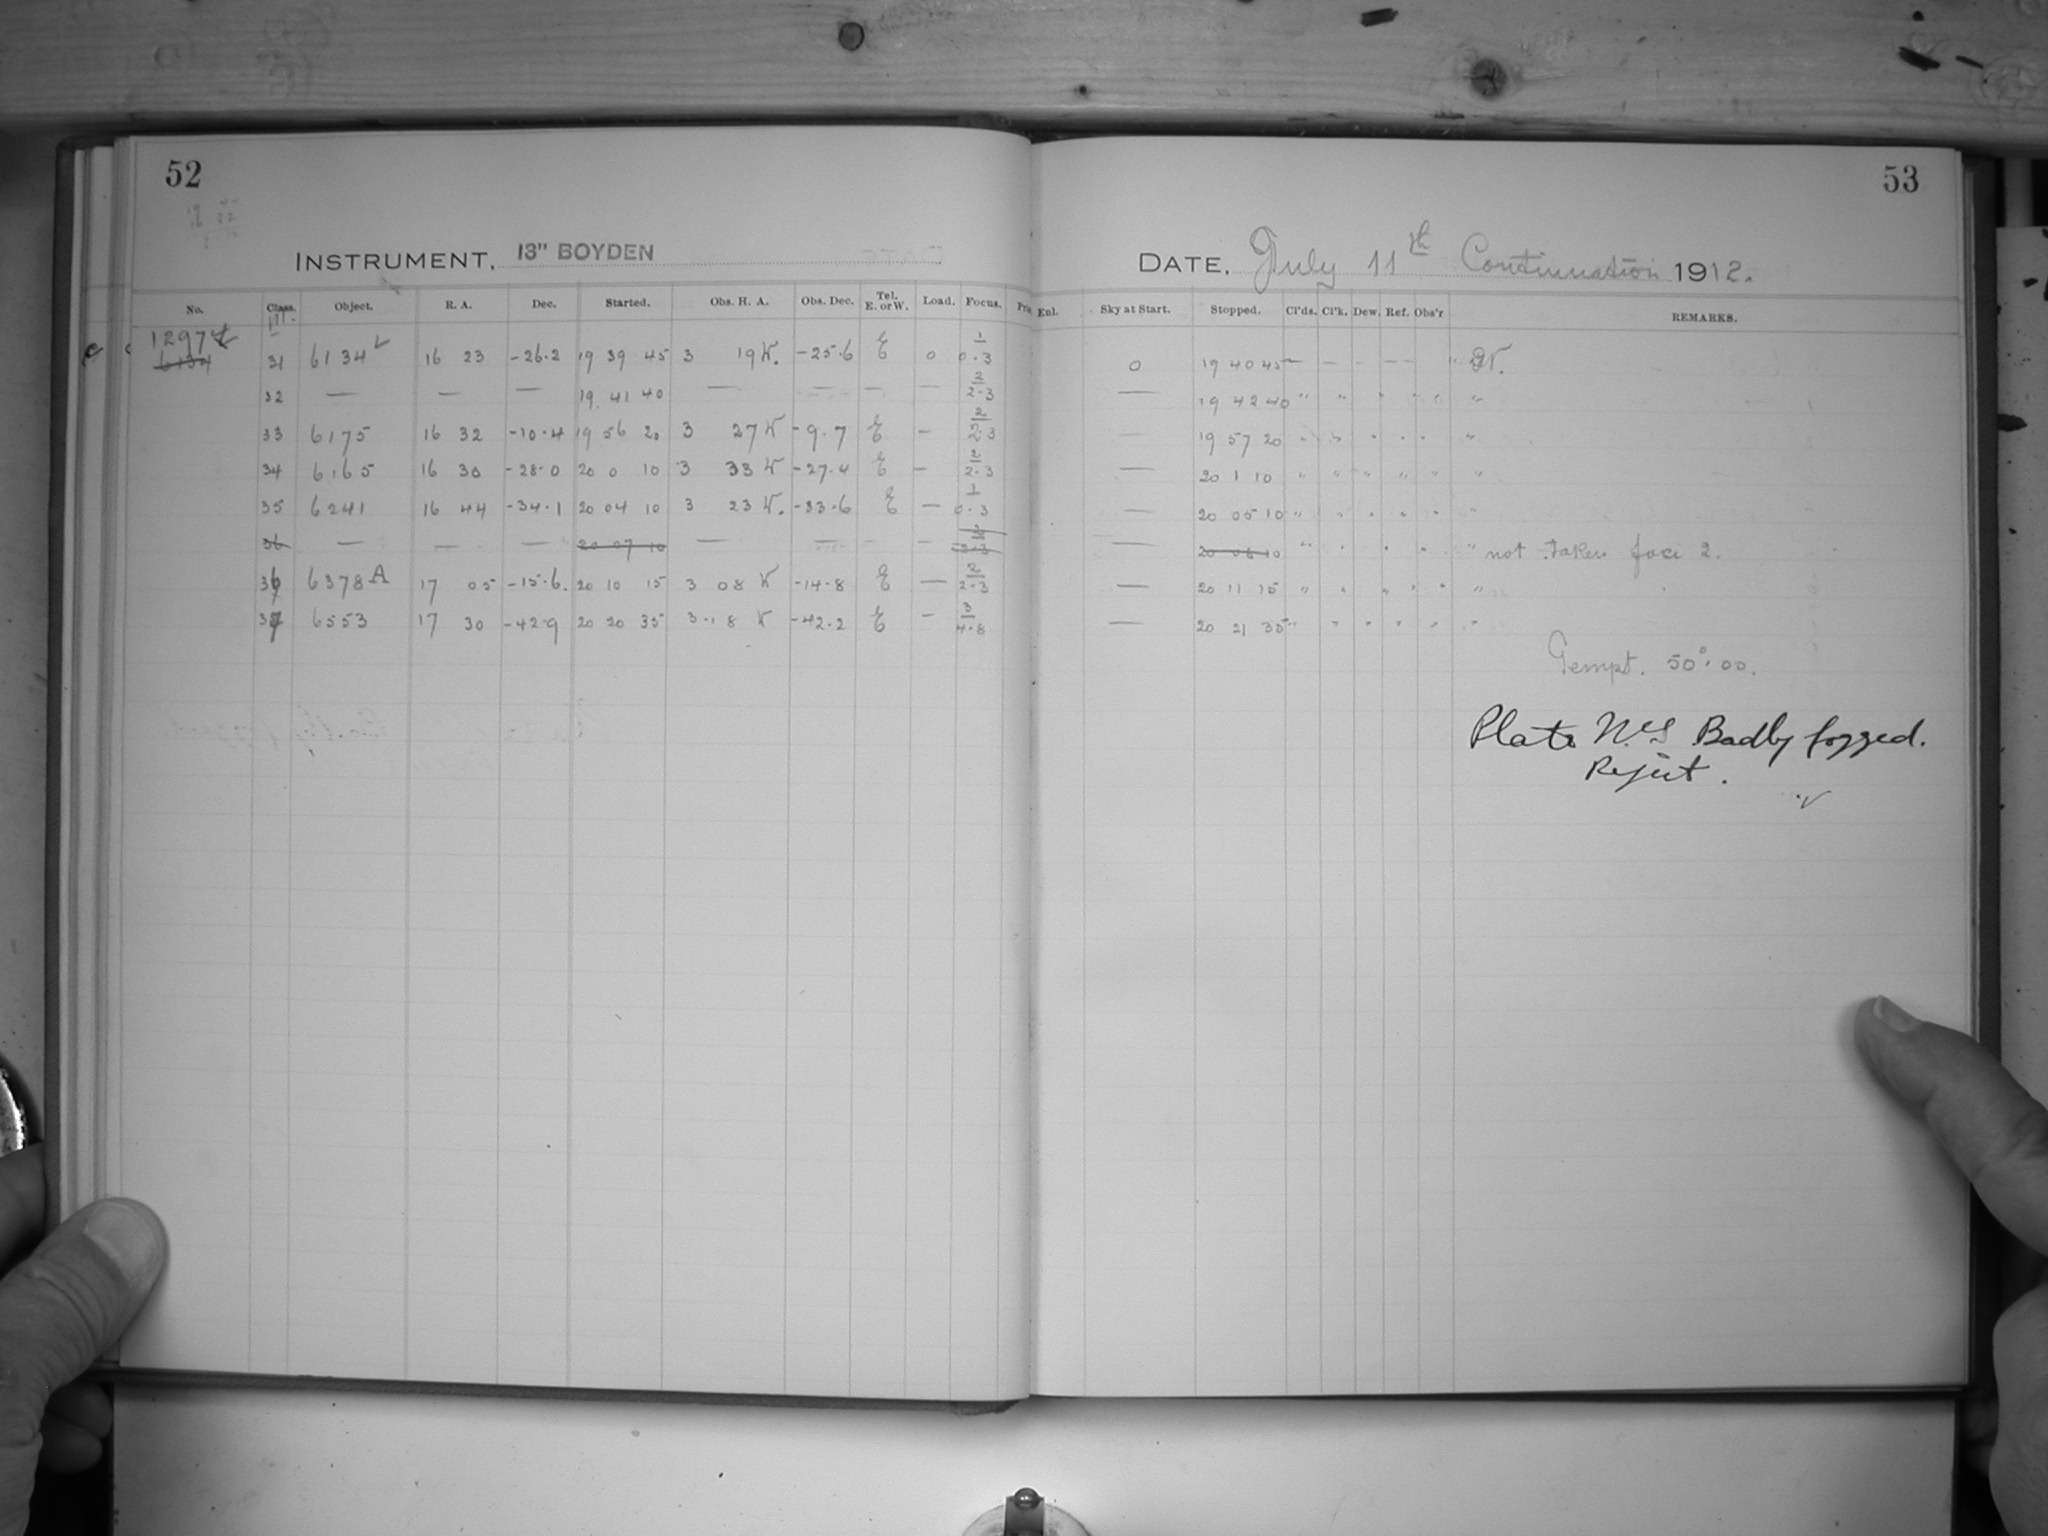 52
53
INSTRUMENT. 13" BOYDEN
DATE. July 11th Continuation 1912.
No. Class. Object. R. A. Dec. Started. Obs. H. A. Obs. Dec. Tel. E. or W. Load. Focus. Enl. Sky at Start. Stopped. Cl'ds. Cl'k. Dew. Ref. Obs'r REMARKS.
12974
31 6134 16 23 -26.2 19 39 45 3 19 W. -25.6 E 0 1 0.3 0 19 40 45 — — - — —
32 — — — 19 41 40 — — — — 2 2.3 — 19 42 40 " " " " " "
33 6175 16 32 -10.4 19 56 20 3 27 W -9.7 E — 2 2.3 — 19 57 20 " " " " " "
34 6165 16 30 -28.0 20 0 10 3 33 W -27.4 E — 2 2.3 — 20 1 10 " " " " " "
35 6241 16 44 -34.1 20 04 10 3 23 W. -33.6 E — 1 0.3 — 20 05 10 " " " " " "
36 — — — 20 07 10 — — — — 3 2.3 — 20 08 10 " " " " " " not taken foci 2.
36 6378 A 17 05 -15.6. 20 10 15 3 08 W -14.8 E — 2 2.3 — 20 11 15 " " " " " "
37 6553 17 30 -42.9 20 20 35 3.18 W -42.2 E — 3 4.8 — 20 21 35 " " " " " "
Tempt. 50°.00.
Plate Nos Badly fogged.
Reject.